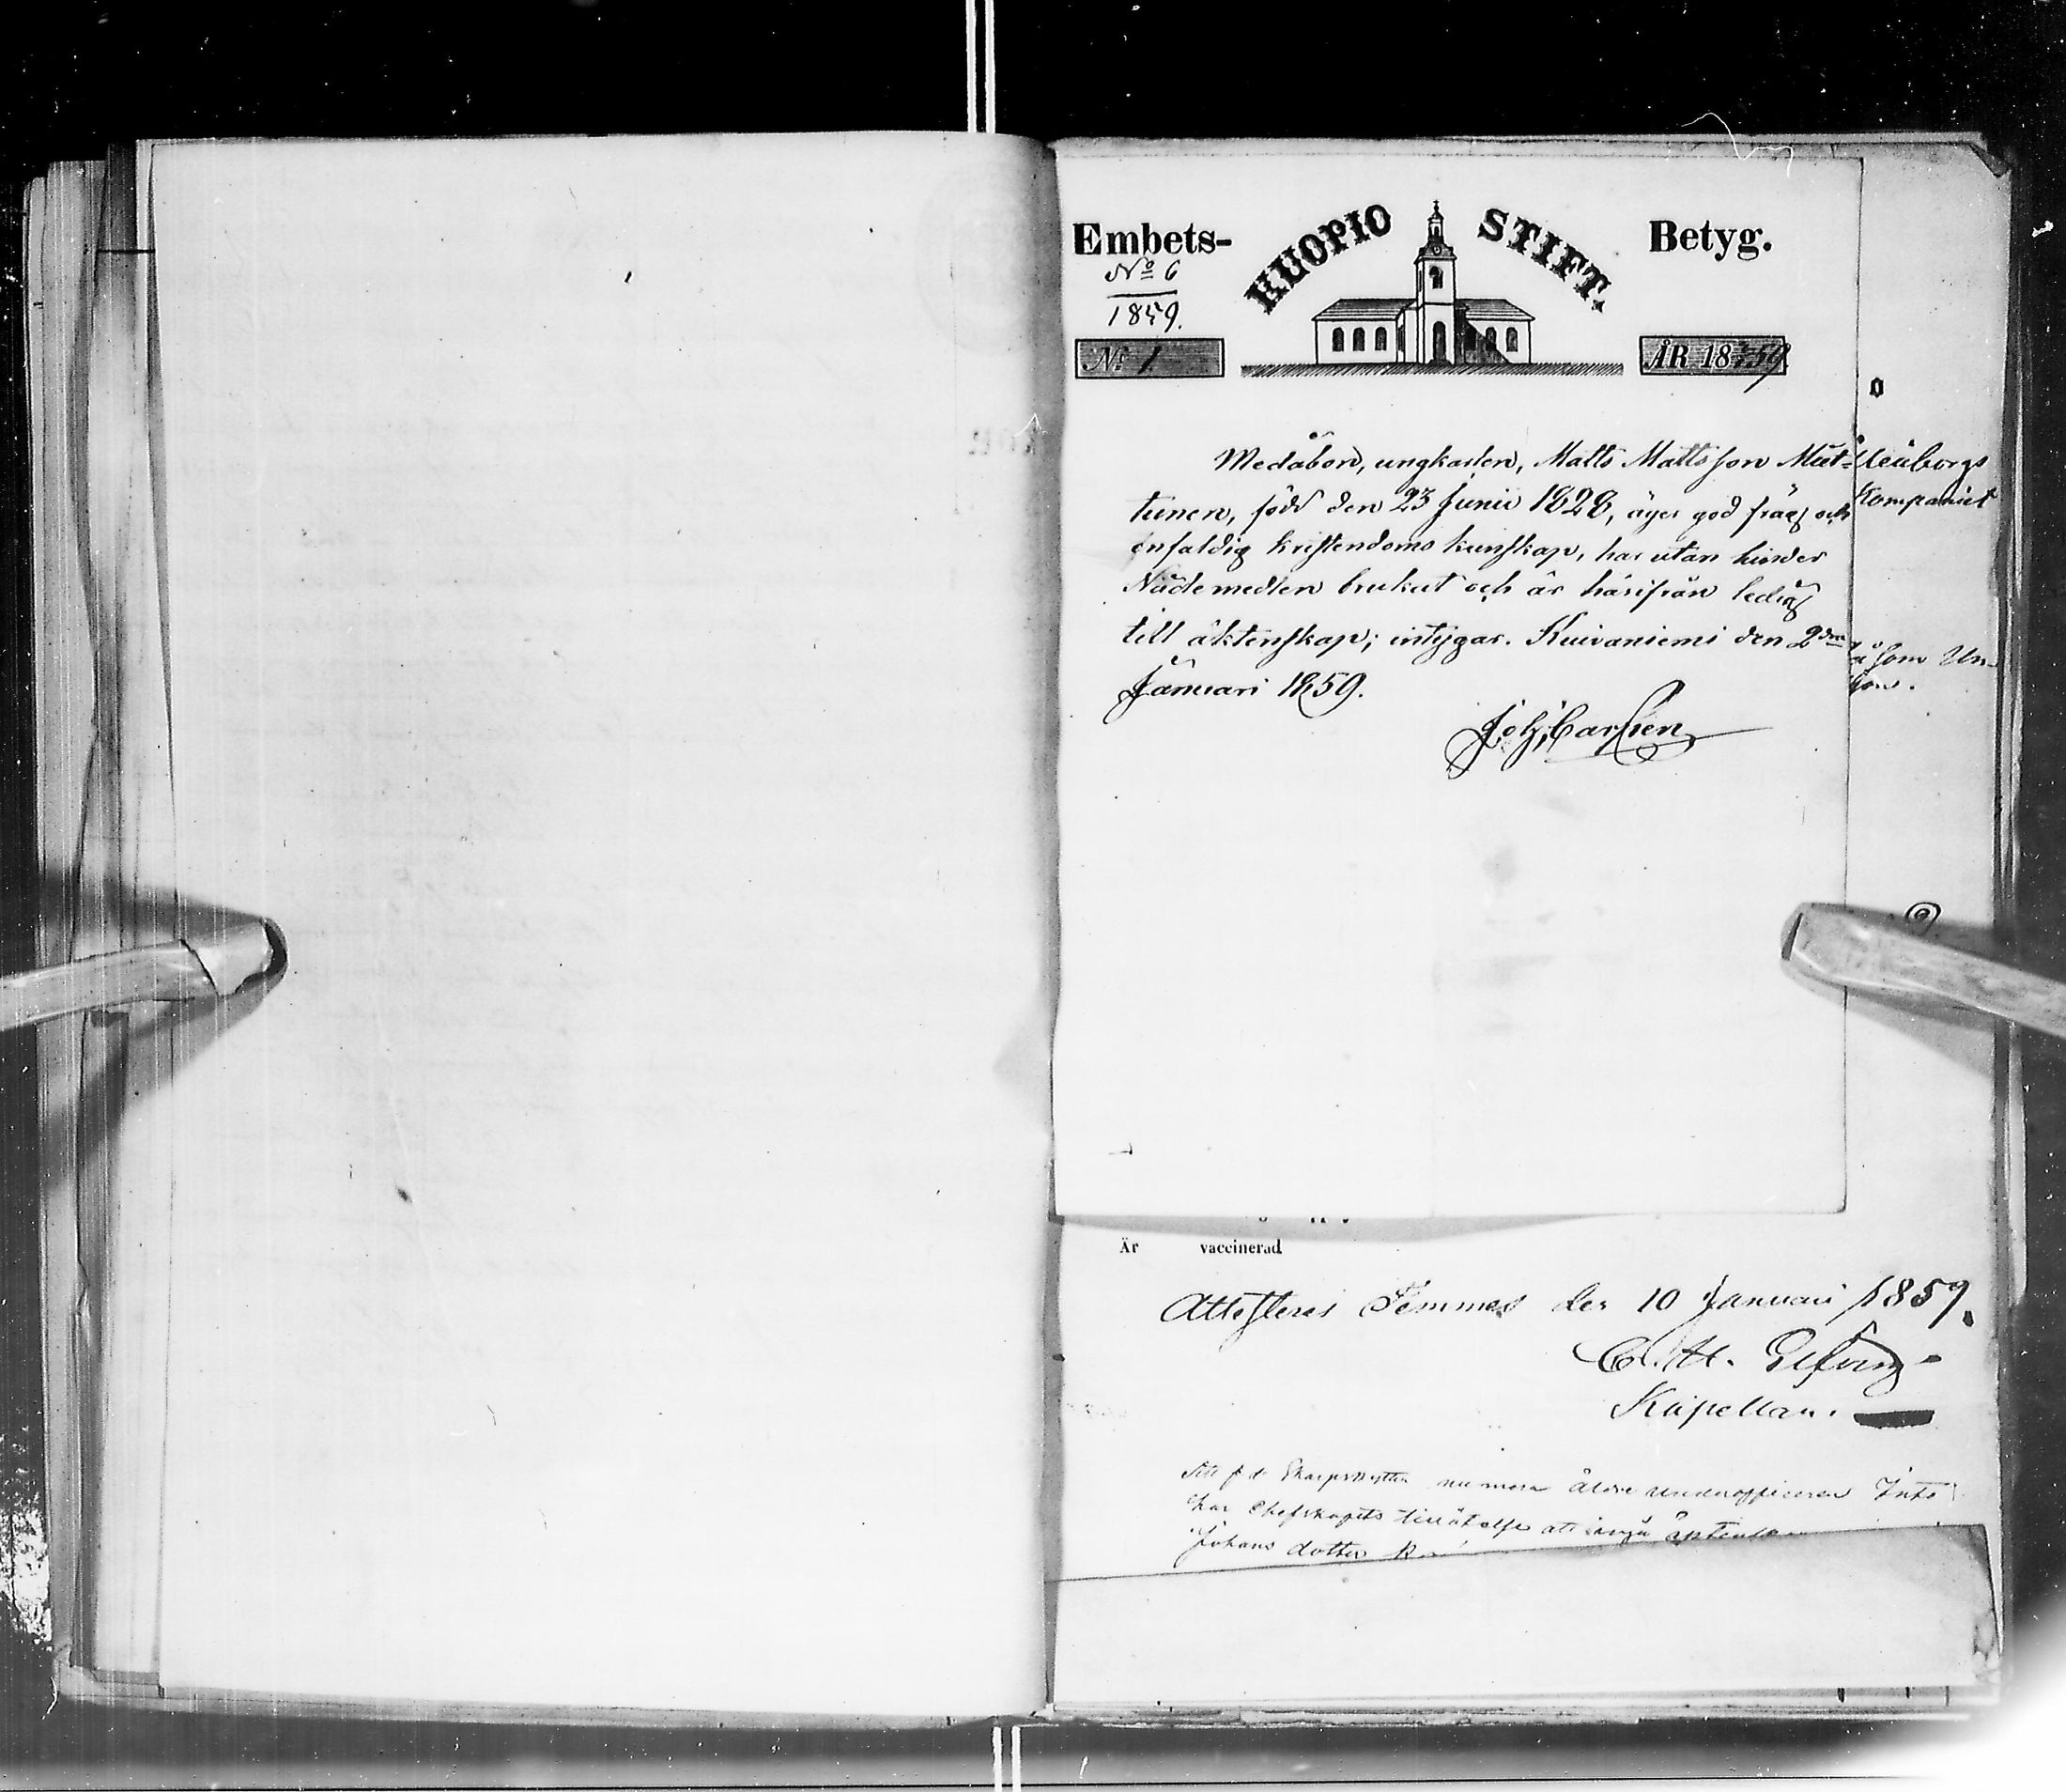 Embets- KUOPIO STIFT. Betyg.
No 6
1859.
No 1. ÅR 1859.
Medåbon, ungkarlen, Matts Mattsson Mut-
tunen, född den 23 Junii 1828, äger god fräjd och
enfaldig kristendoms kunskap, har utan hinder
Nådemedlen brukat och är härifrån ledig
till äktenskap; intygar. Kuivaniemi den 2dra
Januari 1859.
Joh. Carlsen
Uleåborgs
Kompaniet
såsom Un-
Är vaccinerad
Attesteras Temmes den 10 Januari 1859.
C. H.
Kapellan.
Att f. d. Skarpskytten nu mera äldre underofficeren
har Chefskapets tillåtelse att ingå äktenskap
Johans dotter